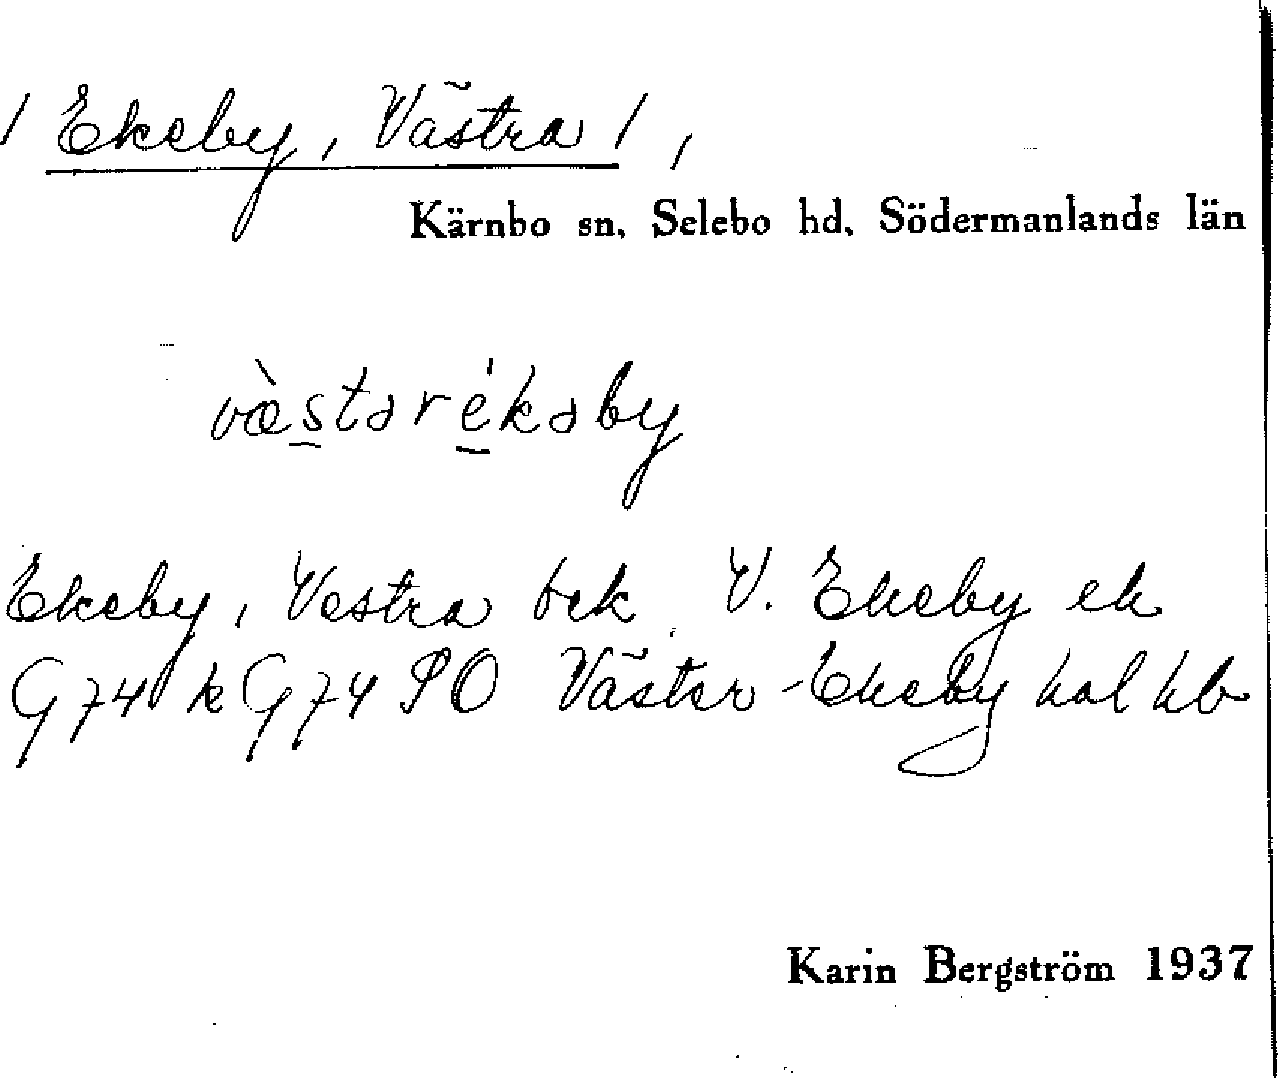 / Ekeby, Västra / ,
Kärnbo sn, Selebo hd, Södermanlands län
væ̀stərékəby
Ekeby, Vestra bek V. Ekeby ek
G74 k G74 PO Väster-Ekeby hal hb
Karin Bergström 1937